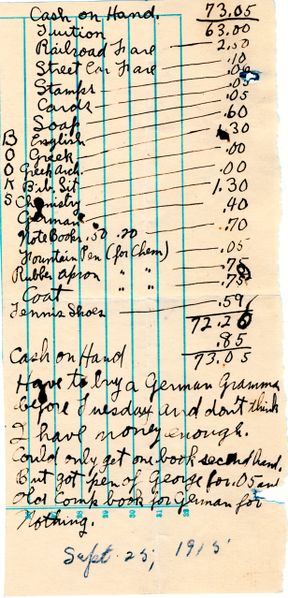 Cash on Hand. 73.05
Tuition 63.00
Railroad Fare 2.50
Street Car Fare .10
Stamps
Cards .05
Soap .05
BOOKS
English .60
Greek .30
Greek Arch. .00
Bib. Lit .00
Chemistry 1.30
German .40
Note Books .50 .20 .70
Fountain Pen (for Chem) .05
Rubber apron " " .75
Coat " " .75
Tennis Shoes .59
72.20
Cash on Hand .85
73.05
Have to buy a German Grammar
before Tuesday and don't think
I have money enough.
Could only get one book second hand.
But got pen of George for .05 and
Hot Comp book for German for
Nothing.
Sept. 25, 1915